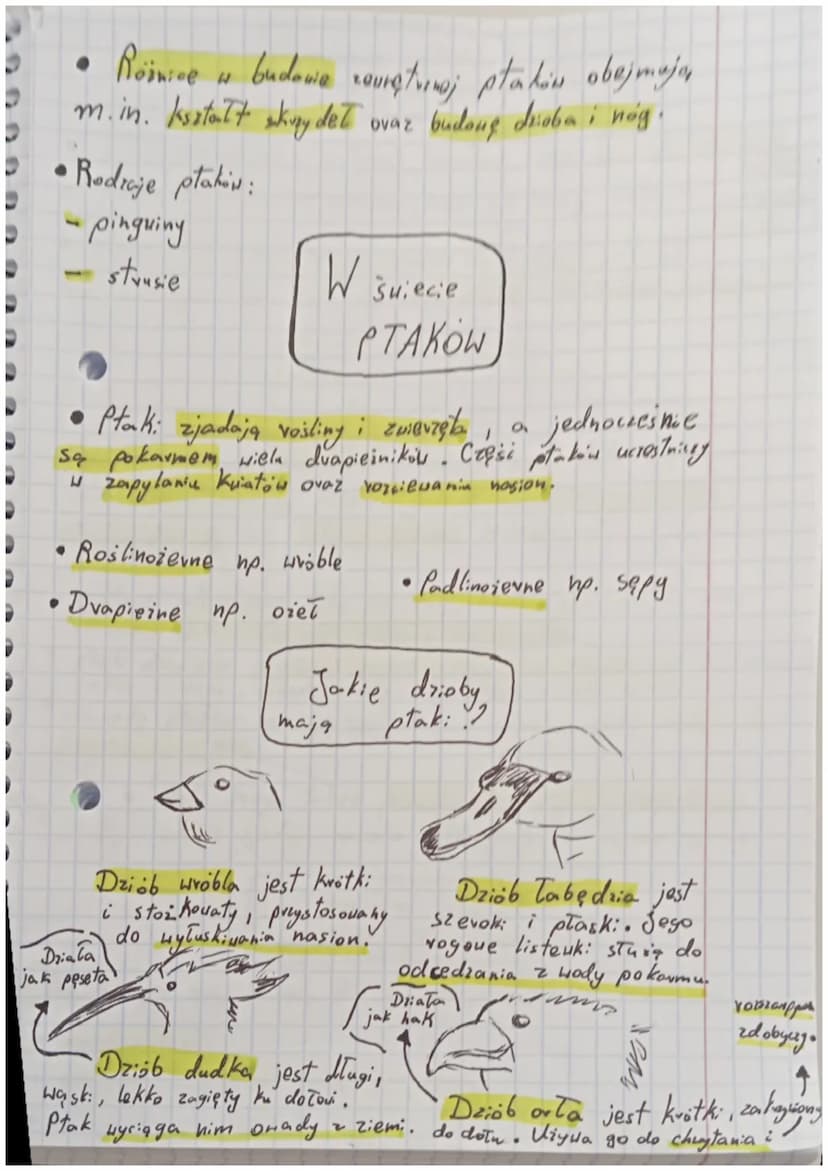 • Różnice w budowie zewnętrznej ptaków obejmują
m.in. kształt skrzydeł oraz budowę dzioba i nóg.
• Rodzaje ptaków:
- pinguiny
- strusie
W świecie
PTAKÓW
• Ptaki zjadają rośliny i zwierzęta, a jednocześnie
są pokarmem wielu drapieżników. Część ptaków uczestniczy
w zapylaniu kwiatów oraz rozsiewaniu nasion.
• Roślinożerne np. wróble
• Padlinożerne np. sępy
• Drapieżne np. orzeł
Jakie dzioby
mają ptaki?
Dziób wróbla jest krótki
i stożkowaty, przystosowany
do wyłuskiwania nasion.
Dziób łabędzia jest
szeroki i płaski. Jego
rogowe listewki służą do
odcedzania z wody pokarmu.
Działa
jak pęseta
Działa
jak hak
Dziób dudka jest długi,
wąski, lekko zagięty ku dołowi.
Ptak wyciąga nim owady z ziemi.
Dziób orła jest krótki, zakrzywiony
do dołu. Używa go do chwytania i
zdobyczy.